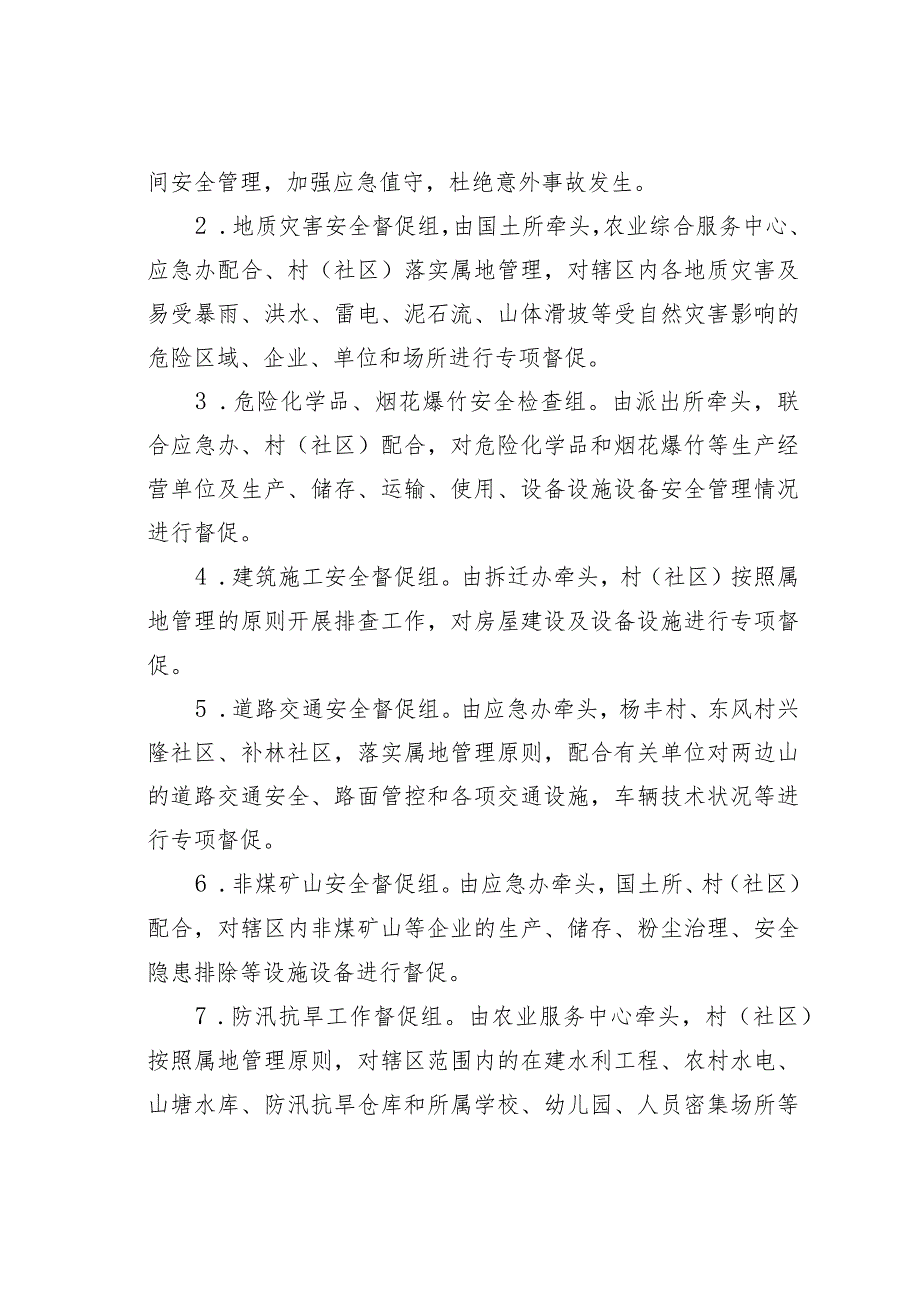 间安全管理，加强应急值守，杜绝意外事故发生。
2．地质灾害安全督促组，由国土所牵头，农业综合服务中心、
应急办配合、村（社区）落实属地管理，对辖区内各地质灾害及
易受暴雨、洪水、雷电、泥石流、山体滑坡等受自然灾害影响的
危险区域、企业、单位和场所进行专项督促。
3．危险化学品、烟花爆竹安全检查组。由派出所牵头，联
合应急办、村（社区）配合，对危险化学品和烟花爆竹等生产经
营单位及生产、储存、运输、使用、设备设施设备安全管理情况
进行督促。
4．建筑施工安全督促组。由拆迁办牵头，村（社区）按照属
地管理的原则开展排查工作，对房屋建设及设备设施进行专项督
促。
5．道路交通安全督促组。由应急办牵头，杨丰村、东风村兴
隆社区、补林社区，落实属地管理原则，配合有关单位对两边山
的道路交通安全、路面管控和各项交通设施，车辆技术状况等进
行专项督促。
6．非煤矿山安全督促组。由应急办牵头，国土所、村（社区）
配合，对辖区内非煤矿山等企业的生产、储存、粉尘治理、安全
隐患排除等设施设备进行督促。
7．防汛抗旱工作督促组。由农业服务中心牵头，村（社区）
按照属地管理原则，对辖区范围内的在建水利工程、农村水电、
山塘水库、防汛抗旱仓库和所属学校、幼儿园、人员密集场所等